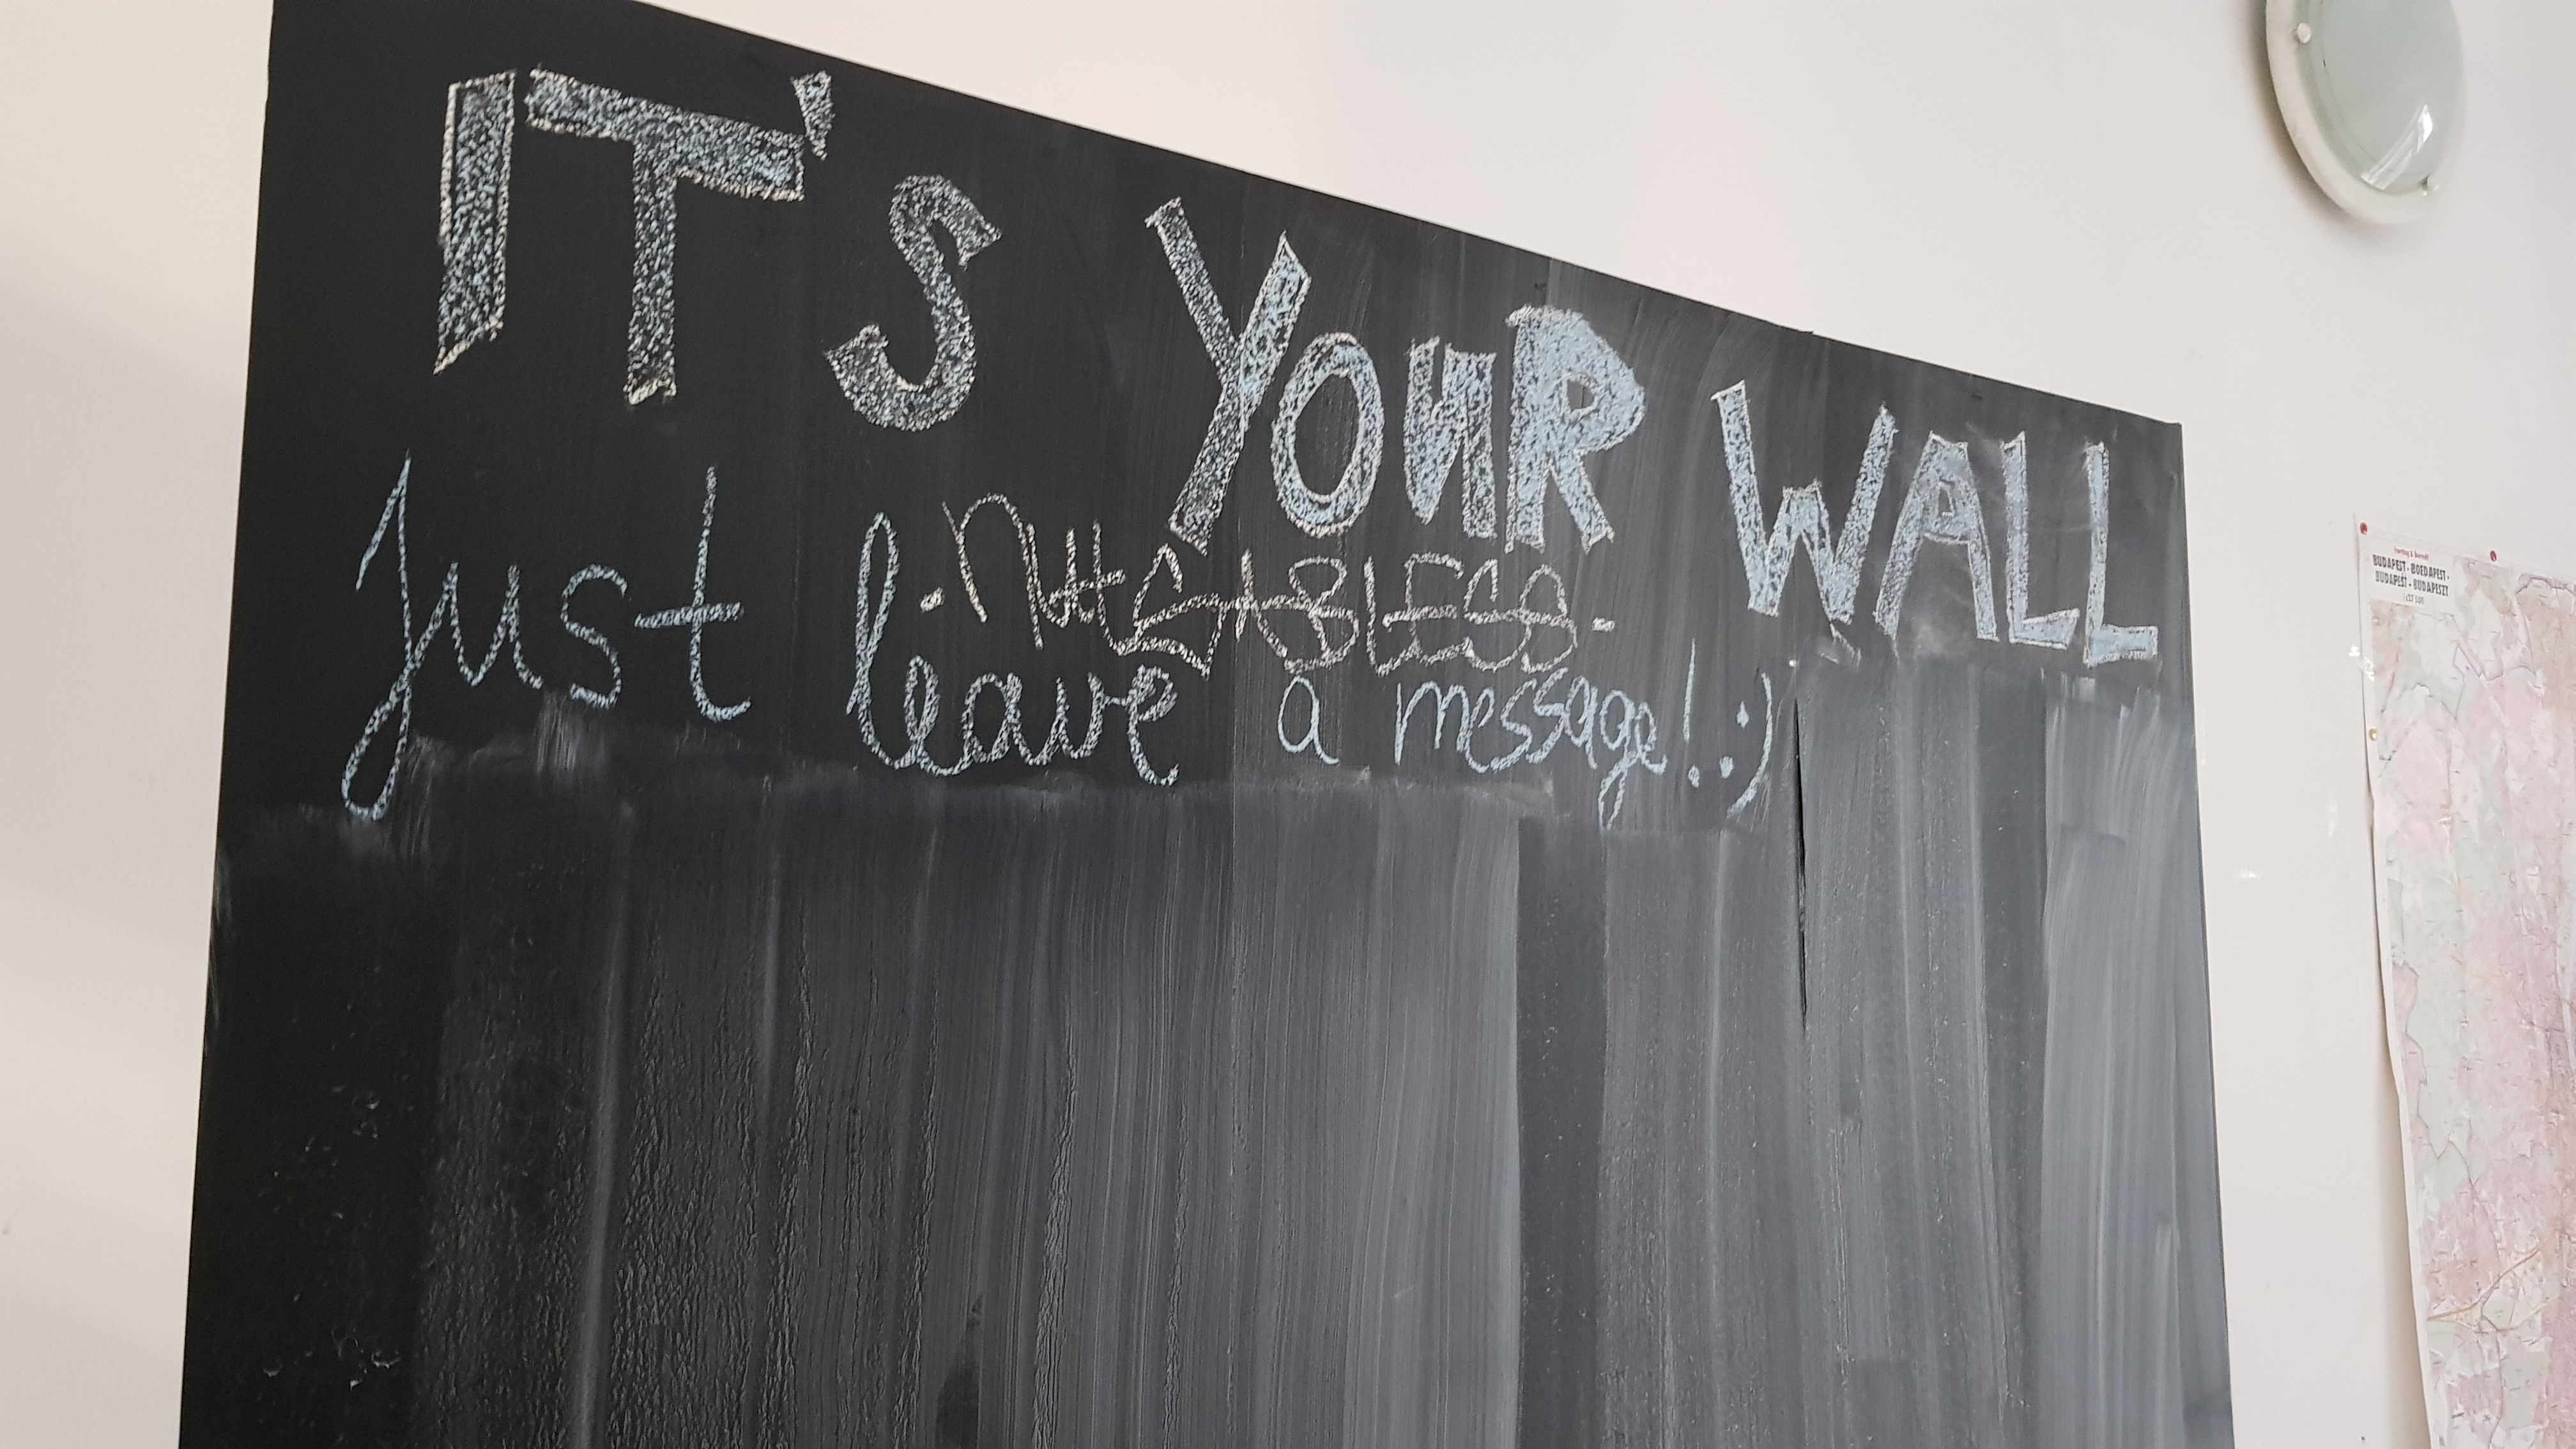 IT'S YOUR WALL
just leave a message! :)
BUDAPEST - BOEDAPEST -
BUDAPEŠŤ - BUDAPESZT